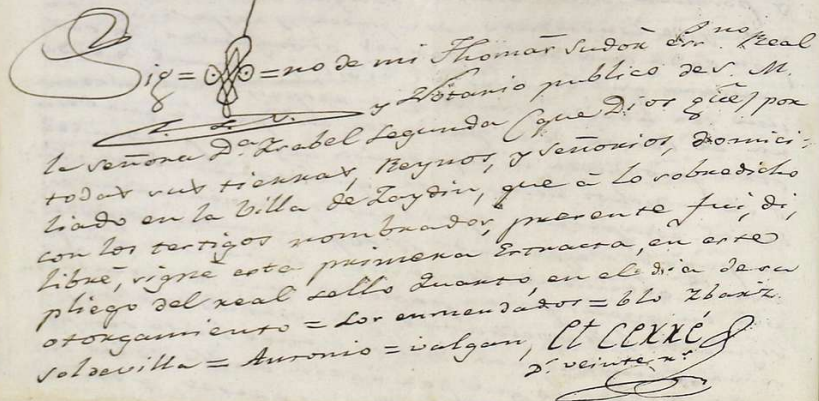 Sig = = no de mi Thomas Sudor Essno. Real
y Notario publico de S. M.
la señora Da. Isabel Segunda (que Dios gūe) por
todas sus tierras, Reynos, y Señorios, domici-
liado en la Villa de Zaydin, que â lo sobredicho
con los testigos nombrados, presente fui, di,
libré, signé esta primera Estracta, en este
pliego del real sello Quarto, en el dia de su
otorgamiento = Los enmendados = blo
Soldevilla = Antonio = valgan, et cerré
Ds. veinte rs.